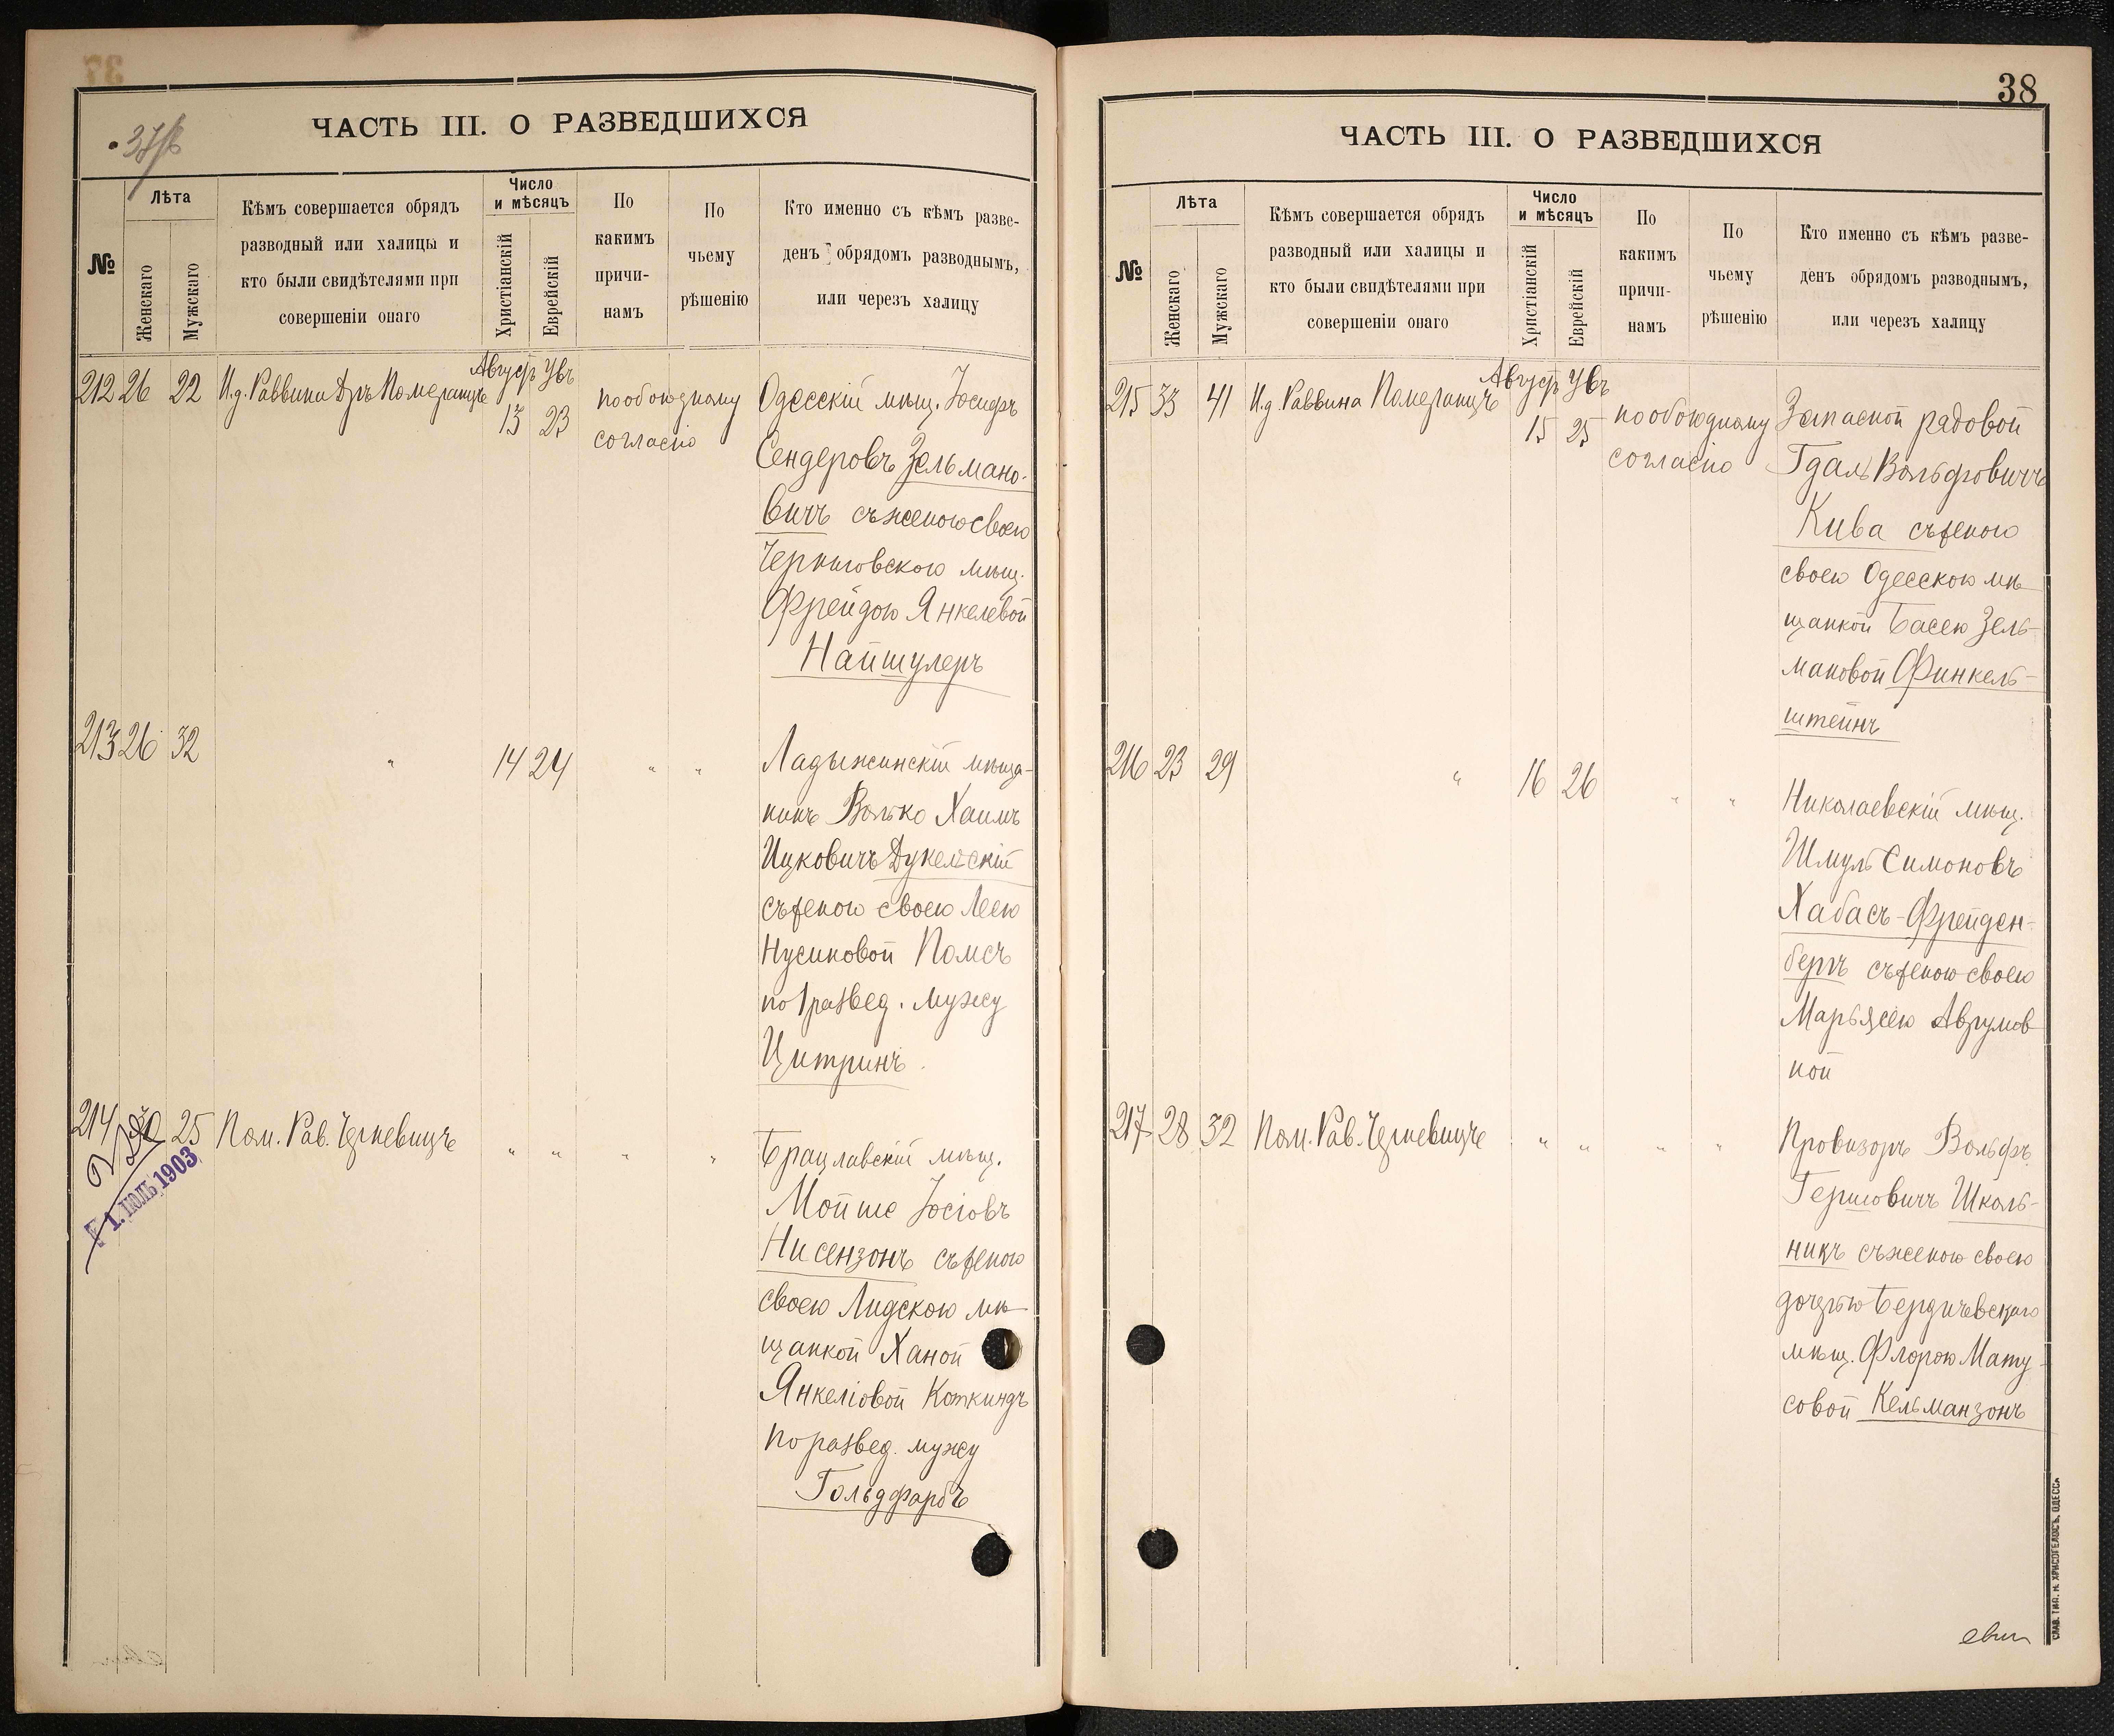 37
37/б
ЧАСТЬ III. О РАЗВЕДШИХСЯ
№
Лѣта
Женскаго
Мужскаго
Кѣмъ совершается обрядъ
разводный или халицы и
кто были свидѣтелями при
совершеніи онаго
Число
и мѣсяцъ
Христіанскій
Еврейскій
По
какимъ
причи-
намъ
По
чьему
рѣшенію
Кто именно съ кѣмъ разве-
денъ обрядомъ разводнымъ,
или черезъ халицу
212 26 22 И.д. Раввина Дръ Померанцъ
Август Увъ
13 23
по обоюдному
согласію
Одесскій мѣщ. Іосифъ
Сендеровъ Зельмано-
вичъ съ женою своею
Черниговскою мѣщ.
Фрейдою Янкелевой
Найшулеръ
213 26 32 " 14 24 " "
Ладыжинскій мѣща-
нинъ Волько Хаимъ
Ицковичъ Дукельскій
съ женою своею Леею
Нусиновой Помсъ
по 1 развед. мужу
Цитринъ
214 30 25 Пом. Рав. Черневицъ " " " "
1. ІЮЛЬ 1903
Брацлавскій мѣщ.
Мойше Іосіовъ
Нисензонъ съ женою
своею Лидскою мѣ-
щанкой Ханой
Янкеліовой Коткиндъ
по развед. мужу
Гольдфарбъ
38
ЧАСТЬ III. О РАЗВЕДШИХСЯ
№
Лѣта
Женскаго
Мужскаго
Кѣмъ совершается обрядъ
разводный или халицы и
кто были свидѣтелями при
совершеніи онаго
Число
и мѣсяцъ
Христіанскій
Еврейскій
По
какимъ
причи-
намъ
По
чьему
рѣшенію
Кто именно съ кѣмъ разве-
денъ обрядомъ разводнымъ,
или черезъ халицу
215 33 41 И.д. Раввина Померанцъ
Август Увъ
15 25
по обоюдному
согласію
Запасной рядовой
Гдаль Вольфовичъ
Кива съ женою
своею Одесскою мѣ-
щанкой Басею Зель-
мановой Финкель-
штейнъ
216 23 29 " 16 26 " "
Николаевскій мѣщ.
Шмуль Симоновъ
Хабасъ-Фрейден-
бергъ съ женою своею
Марьясею Аврумов-
ной
217 28 32 Пом. Рав. Черневицъ " " " "
Провизоръ Вольфъ
Гершовичъ Школь-
никъ съ женою своею
дочерью Бердичевскаго
мѣщ. Флорою Мату-
совой Кельманзонъ
СЛАВ. ТИП. Н. ХРИСОГЕЛОСЪ, ОДЕССА